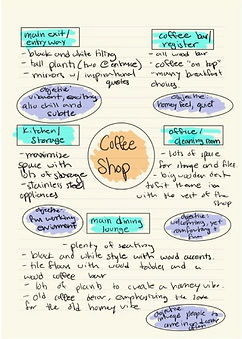 main exit/
entryway
- black and white tiling
- tall plants (two @ entrance)
- mirrors w/ inspirational
quotes
objective:
vibrant, exciting
also chill and
subtle
coffee bar/
register
- all wood bar
- coffee "on top"
- many breakfast
choices.
objective:
homey feel, quiet
Kitchen/
storage
- maximize
space with
lots of storage
- stainless steel
appliances
objective:
fun working
enviroment
Coffee
Shop
office/
cleaning room
- lots of space
for storage and files.
- big wooden desk
to fit theme
with the rest of the
shop
objective:
welcoming, yet
comforting
main dining
lounge
- plenty of seating
- black and white style with wood accents.
tile floors with wood tables and a
wood coffee bar
- lots of plants to create a homey vibe.
- old coffee decor, emphasizing the love
for the old homey vibe
objective:
people to
come in